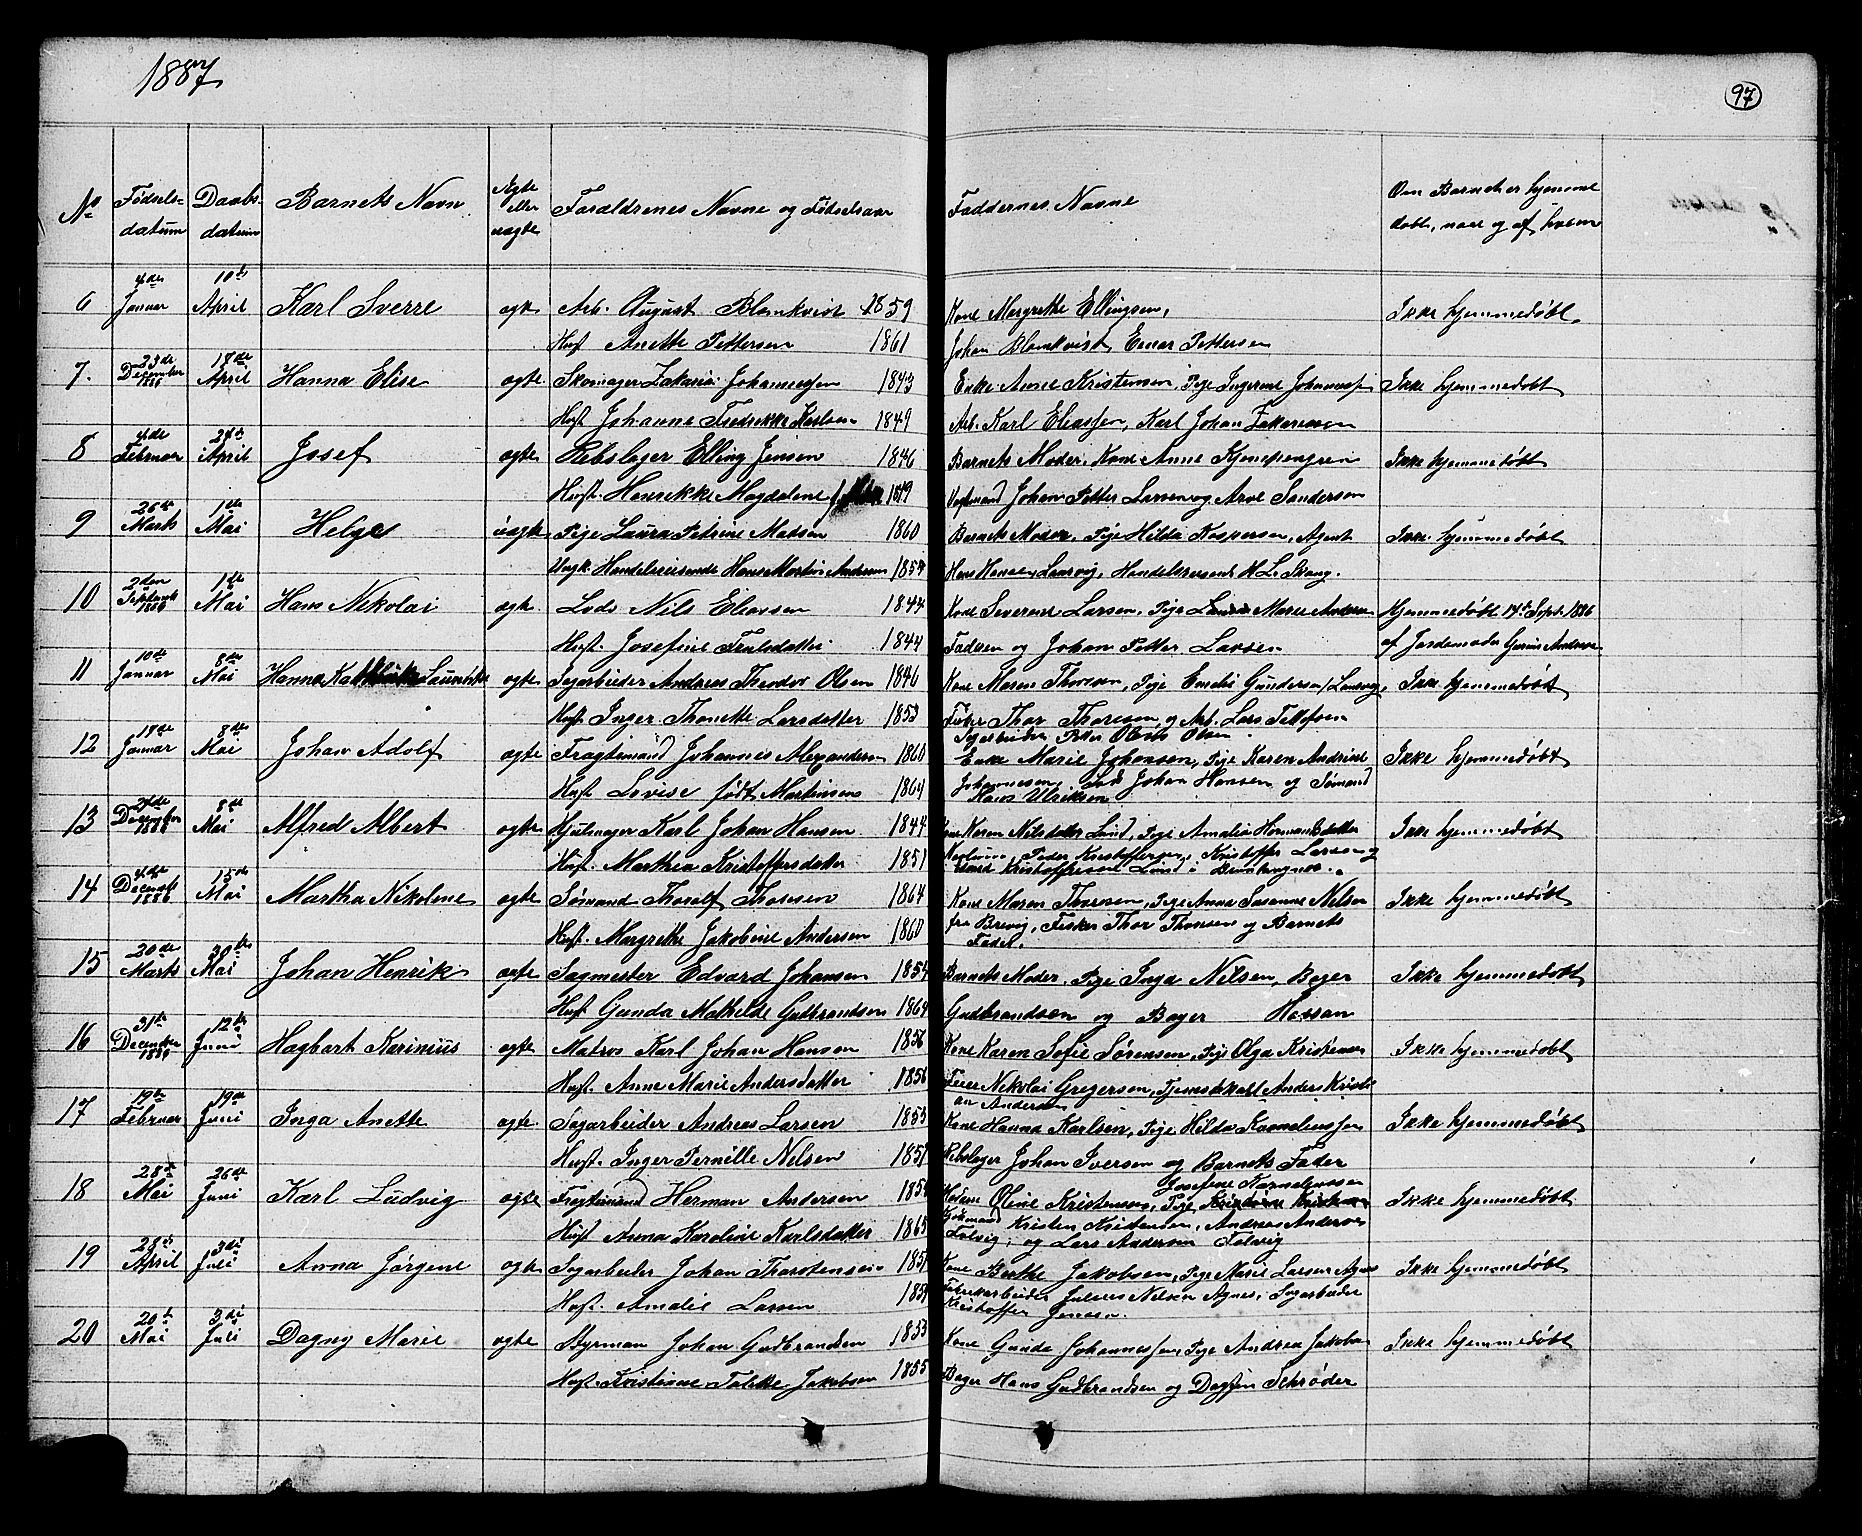 1887
97
No Fødsels- datum Daabs- datum Barnets Navn Ægte eller uægte Forældrenes Navne og Fødselsaar Faddernes Navne Om Barnet er hjemme døbt, naar og af hvem
6 4de Januar 10de April Karl Sverre ægte Arb. August Blomkvist 1859 Kone Margrethe Ellingsen, Ikke hjemmedøbt
Hust. Anette Pettersen 1861 Johan Blomkvist, Einar Pettersen
7. 23de December 1886 18de April Hanna Elise ægte Skomager Zakarias Johannessen 1843 Enke Anne Kristensen, Pige Ingerine Johannessen Ikke hjemmedøbt
Hust. Johanne Fredrikke Karlsen 1849 Arb. Karl Eliassen, Karl Johan Zakariassen
8 4de Februar April Josef ægte Rebslager Elling Jensen 1846 Barnets Moder, Kone Anne Ikke hjemmedøbt
Hust. Henrikke Magdalene 1849 Johan Petter Larsen og Arne Sandersen
9 26de Marts 1ste Mai Helge uægte Pige Laura Petrine Madsen 1860 Barnets Moder, Pige Hilda Kaspersen, Agent Ikke hjemmedøbt
Ungk. Handelsreisende Hans Martin Andersen Hans Hansen, Laurvig, Handelsreisende H. L. Skaug.
10 2den September 1886 1ste Mai Hans Nikolai ægte Lods Nils Eliassen 1844 Kone Severine Larsen, Pige Laura Marie Andersen Hjemmedøbt 14de Sept. 1886
Hust. Josefine Truls datter 1844 Faderen og Johan Petter Larsen af Jordemoder Andersen
11 10de Januar 8de Mai Hanna Laurentse ægte Sagarbeider Andreas Theodor Olsen 1846 Kone Maren Thoresen, Pige Emelie Gundersen, Laurvig, Ikke hjemmedøbt
Hust. Inger Thonette Larsdatter 1853 Fisker Thor Thoresen og Arb. Lars Tellefsen
Sagarbeider Peter Olsen.
12 19de Januar 8de Mai Johan Adolf ægte Fragtemand Johannes Alexandersen 1860 Enke Marie Johansen, Pige Karen Andrine Ikke hjemmedøbt
Hust. Lovise født Martinsen 1864 Johannessen, Johan Hansen og Sømand
Hans Ulriksen
13 December 1886 8de Mai Alfred Albert ægte Hjulmager Karl Johan Hansen 1844 Kone Karen Nilsdatter Lund, Pige Amalia Hermansdatter Ikke hjemmedøbt
Hust. Marthea Kristoffersdatter 1851 Peder Kristoffersen, Kristoffer Larsen og
Kristoffersen Lund i
14 4de December 1886 15de Mai Martha Nikoline ægte Sømand Thoralf Thoresen 1864 Kone Maren Thoresen, Pige Anna Susanne Nelsen Ikke hjemmedøbt
Hust. Margrethe Jakobine Andersen 1860 fra Brevig, Fisker Thor Thoresen og Barnets
Fader.
15 20de Marts 30te Mai Johan Henrik ægte Sagmester Edvard Johansen 1854 Barnets Moder, Pige Inga Nilsen, Bager Ikke hjemmedøbt
Hust. Gunda Mathilde Gulbrandsen 1864 Gudbrandsen og Bager Hassan
16 31te December 12te Juni Hagbart Karinius ægte Matros Karl Johan Hansen 1856 Kone Karen Sofie Sørensen, Pige Olga Kristensen Ikke hjemmedøbt
Hust. Anne Marie Andersdatter 1856 Feier Nikolai Gregersen, Tjenestekarl Anders Kristi-
an Andersen
17 19de Februar 19de Juni Inga Anette ægte Sagarbeider Andreas Larsen 1853 Kone Hanna Karlsen, Pige Hilda Korneliussen Ikke hjemmedøbt
Hust. Inger Pernille Nelsen 1851 Rebslager Johan Iversen og Barnets Fader
18 28de Mai 26de Juni Karl Ludvig ægte Fragtemand Herman Andersen Madame Oline Kristensen, Pige Josefine Korneliussen Ikke hjemmedøbt
Hust. Anna Karoline Karlsdatter 1865 Kristen Kristensen, Andreas Andersen
Tolvig, og Lars Andersen Tolvig
19 April 3die Juli Anna Jørgine ægte Sagarbeider Johan Thorstensen Kone Berthe Jakobsen, Pige Marie Larsen Agnes Ikke hjemmedøbt
Hust. Amalie Larsen Fabrikarbeider Julius Nelsen Agnes, Sagarbeider
Kristoffer Jensen.
20 20de Mai 3die Juli Dagny Marie ægte Styrman Johan Gudbrandsen 1853 Kone Gunda Johannessen, Pige Andrea Jakobsen Ikke hjemmedøbt
Hust. Kristiane Tolette Jakobsen 1855 Bager Hans Gudbrandsen og Dagfin Schrøder